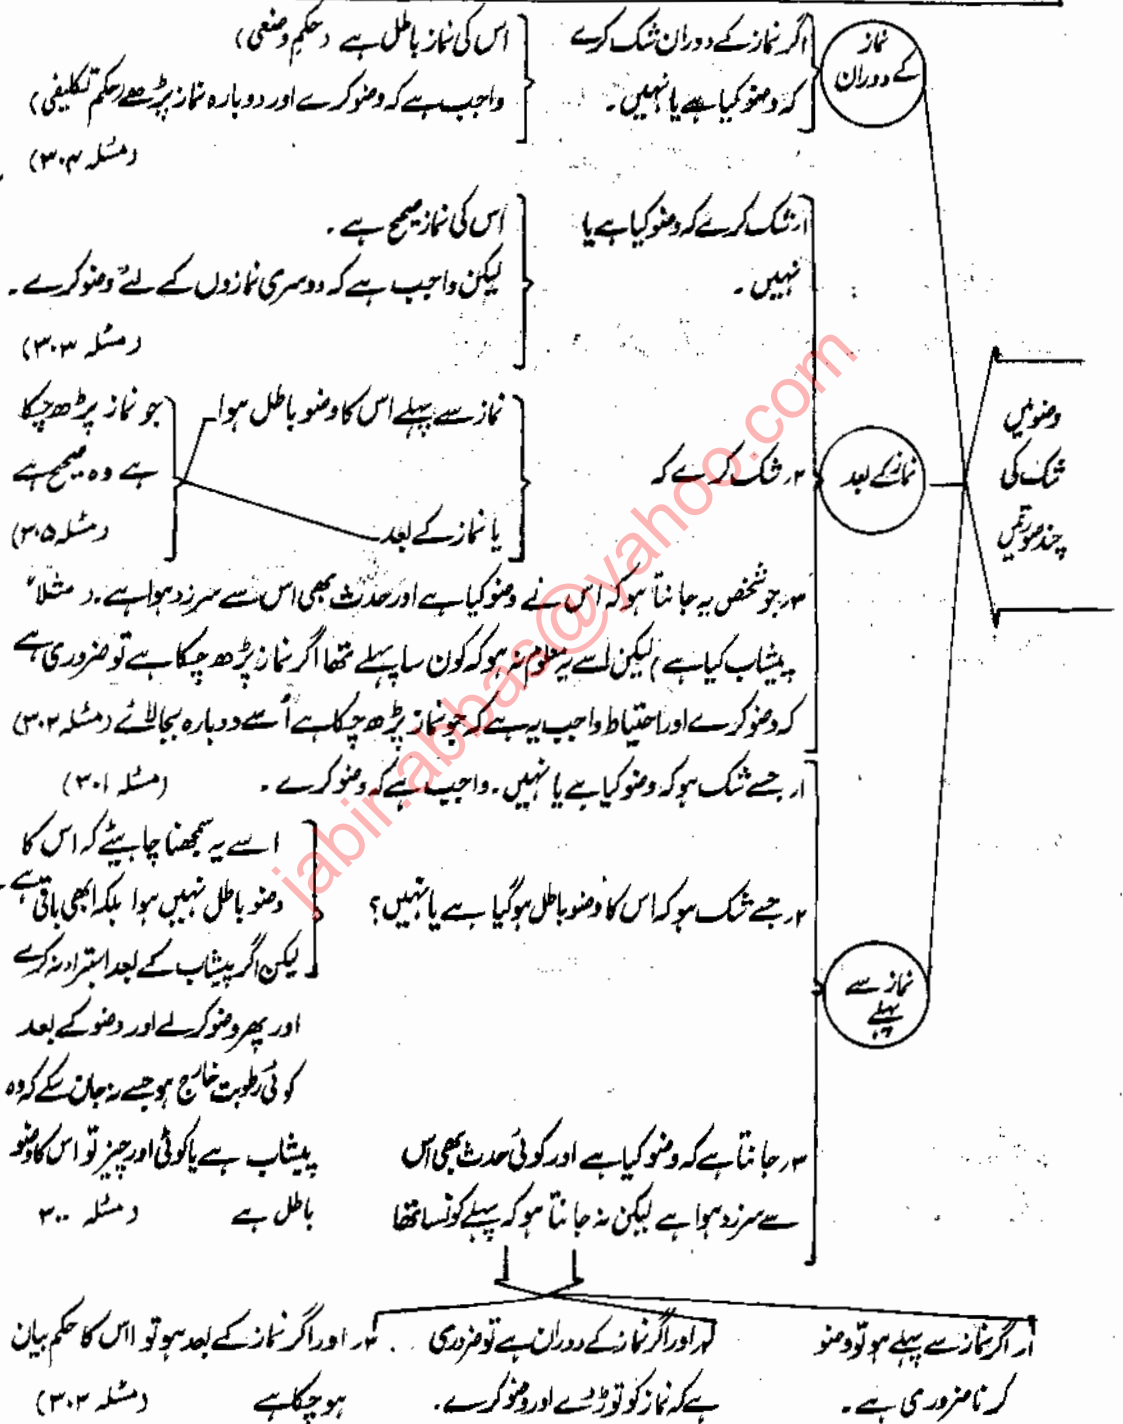 وضو میں
شک کی
چند صورتیں
نماز
کے دوران
اگر نماز کے دوران شک کرے
کہ وضو کیا ہے یا نہیں۔
اس کی نماز باطل ہے (حکم وضعی)
واجب ہے کہ وضو کرے اور دوبارہ نماز پڑھے (حکم تکلیفی)
(مسئلہ ۳۰۴)
نماز کے بعد
۱۔ شک کرے کہ وضو کیا ہے یا
نہیں۔
اس کی نماز صحیح ہے۔
لیکن واجب ہے کہ دوسری نمازوں کے لئے وضو کرے۔
(مسئلہ ۳۰۳)
۲۔ شک کرے کہ
نماز سے پہلے اس کا وضو باطل ہوا
یا نماز کے بعد
جو نماز پڑھ چکا
ہے وہ صحیح ہے
(مسئلہ ۳۰۵)
۳۔ جو شخص یہ جانتا ہو کہ اس نے وضو کیا ہے اور حدث بھی اس سے سرزد ہوا ہے۔ (مثلاً
پیشاب کیا ہے) لیکن اسے یہ معلوم نہ ہو کہ کون سا پہلے تھا اگر نماز پڑھ چکا ہے تو ضروری ہے
کہ وضو کرے اور احتیاط واجب یہ ہے کہ جو نماز پڑھ چکا ہے اُسے دوبارہ بجا لائے (مسئلہ ۳۰۲)
نماز سے
پہلے
۱۔ جسے شک ہو کہ وضو کیا ہے یا نہیں۔ واجب ہے کہ وضو کرے۔ (مسئلہ ۳۰۱)
۲۔ جسے شک ہو کہ اس کا وضو باطل ہو گیا ہے یا نہیں؟
اسے یہ سمجھنا چاہیئے کہ اس کا
وضو باطل نہیں ہوا بلکہ ابھی باقی ہے۔
لیکن اگر پیشاب کے بعد استبراء نہ کرے
اور پھر وضو کر لے اور وضو کے بعد
کوئی رطوبت خارج ہو جسے نہ جان سکے کہ وہ
پیشاب ہے یا کوئی اور چیز تو اس کا وضو
باطل ہے (مسئلہ ۳۰۰
۳۔ جانتا ہے کہ وضو کیا ہے اور کوئی حدث بھی اس
سے سرزد ہوا ہے لیکن نہ جانتا ہو کہ پہلے کونسا تھا
۱۔ اگر نماز سے پہلے ہو تو وضو
کرنا ضروری ہے۔
۲۔ اور اگر نماز کے دوران ہے تو ضروری
ہے کہ نماز کو توڑ دے اور وضو کرے۔
۳۔ اور اگر نماز کے بعد ہو تو اس کا حکم بیان
ہو چکا ہے (مسئلہ ۳۰۲)
jabir.abbas@yahoo.com